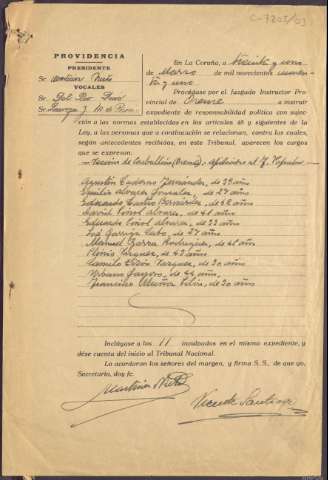 C-7203/03
PROVIDENCIA
PRESIDENTE
Sr. Martínez Nieto
VOCALES
Sr. Gil
Sr.
En La Coruña, a treinta y uno
de Marzo de mil novecientos cuaren-
ta y uno.
Procédase por el Juzgado Instructor Pro-
vincial de Orense a instruir
expediente de responsabilidad política con suje-
ción a las normas establecidas en los artículos 45 y siguientes de la
Ley, a las personas que a continuación se relacionan, contra los cuales,
según antecedentes recibidos, en este Tribunal, aparecen los cargos
que se expresan.
Vecinos de Carballino (Orense). Afiliados al F. Popular
Agustín Fernández, de 39 años
Emilio González, de 27 años
Edmundo Castro Fernández, de 62 años
David Álvarez, de 41 años
Eduardo Álvarez, de 33 años
José Garriga Cabo, de 27 años
Manuel Rodríguez, de 41 años
Vázquez, de 43 años
Camilo Vázquez, de 30 años
de 44 años
Francisco de 30 años
Inclúyase a los 11 inculpados en el mismo expediente, y
dése cuenta del inicio al Tribunal Nacional.
Lo acordaron los señores del margen, y firma S. S. de que yo,
Secretario, doy fe.
Martínez Nieto
Vicente Santiago